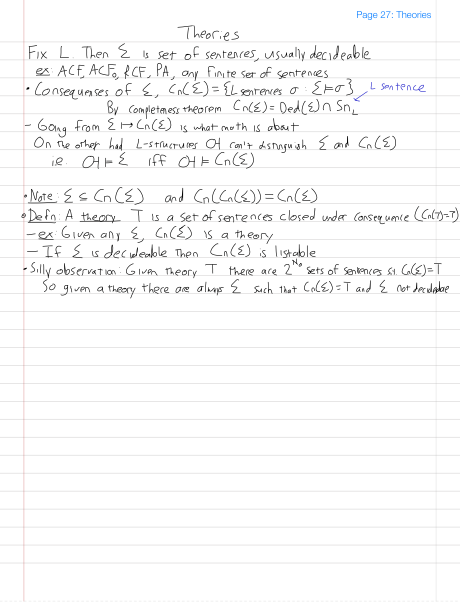 Page 27: Theories
Theories
Fix L. Then Σ is set of sentences, usually decideable
ex: ACF, ACF₀, RCF, PA, any finite set of sentences
• Consequences of Σ, Cn(Σ) = {L sentences σ : Σ ⊨ σ}
L sentence
By completness theorem Cn(Σ) = Ded(Σ) ∩ Sn_L
- Going from Σ ↦ Cn(Σ) is what math is about
On the other had L-structures 𝔄 can't distinguish Σ and Cn(Σ)
i.e. 𝔄 ⊨ Σ iff 𝔄 ⊨ Cn(Σ)
• Note: Σ ⊆ Cn(Σ) and Cn(Cn(Σ)) = Cn(Σ)
• Defn: A theory T is a set of sentences closed under consequence (Cn(T)=T)
- ex: Given any Σ, Cn(Σ) is a theory
- If Σ is decideable then Cn(Σ) is listable
• Silly observation: Given theory T there are 2^ℵ₀ sets of sentences st Cn(Σ)=T
So given a theory there are always Σ such that Cn(Σ)=T and Σ not decidable